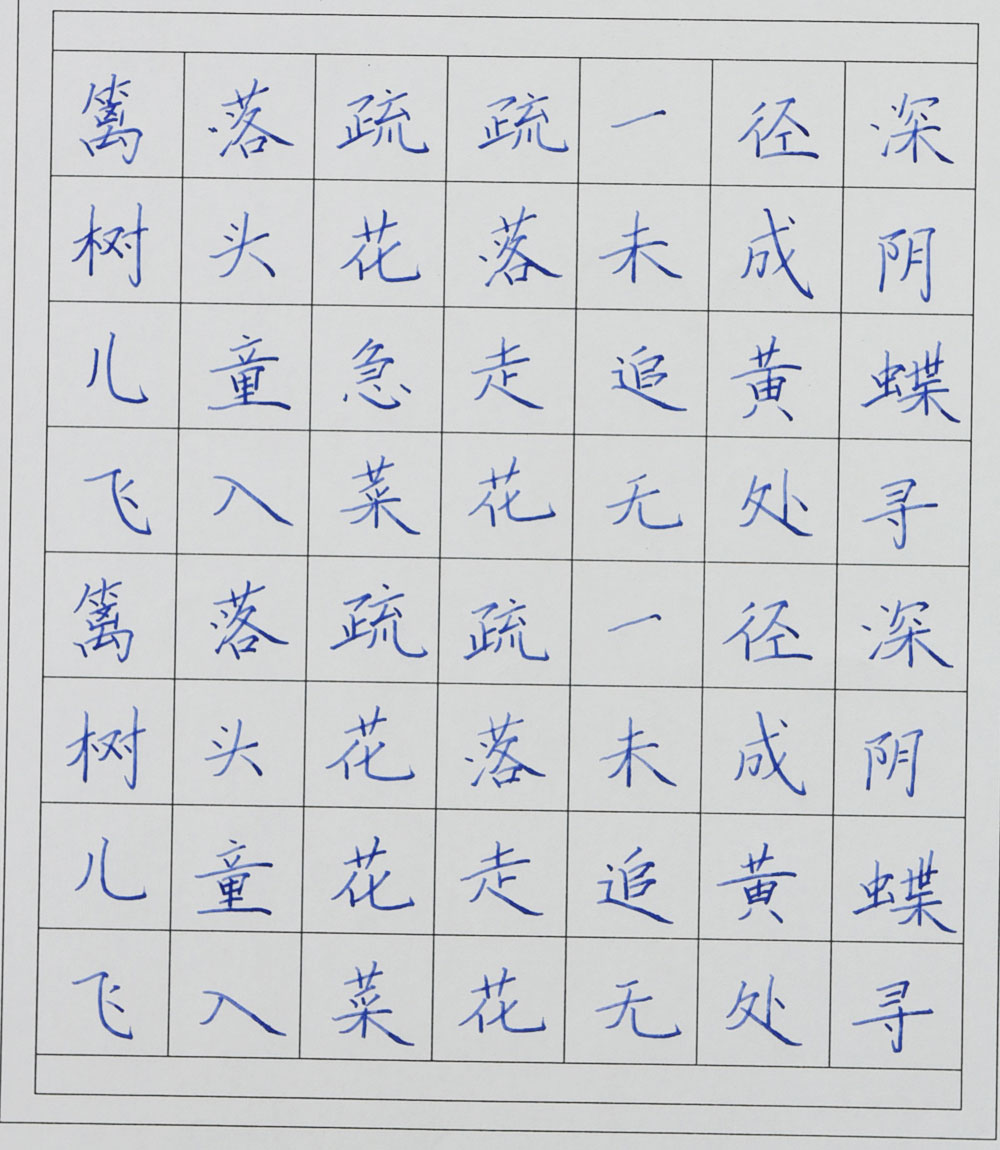 篱落疏疏一径深
树头花落未成阴
儿童急走追黄蝶
飞入菜花无处寻
篱落疏疏一径深
树头花落未成阴
儿童花走追黄蝶
飞入菜花无处寻